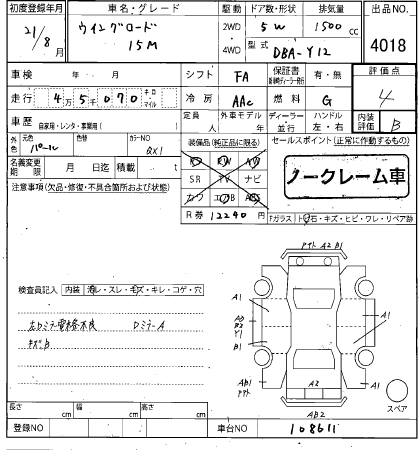 初度登録年月 車名・グレード 駆動 ドア数・形状 排気量 出品NO.
21/8月 ウイングロード 15M 2WD 4WD 5W 1500cc
型式 DBA-Y12 4018
車検 年 月 シフト FA 保証書 有・無 評価点
走行 4万5千070 キロ マイル 冷房 AAC 燃料 G 4
車歴 自家用・レンタ・事業用( ) 定員 人 外車モデル 年 ディーラー 並行 ハンドル 左・右 内装評価 B
外色 元色 パール 色替 カラーNO QX1 装備品(純正品に限る) セールスポイント(正常に作動するもの)
名義変更期限 月 日迄 積載 t SR TV ナビ ノークレーム車
注意事項(欠品・修復・不具合箇所および状態) カワ
R券 12240円 Fガラス 石・キズ・ヒビ・ワレ・リペア跡
A2 B1
検査員記入 内装 ・スレ・ ・キレ・コゲ・穴
A1 A1
左Dミラー電格不良 DミラーA
キズB Y1 B1 A1
AB1 A2 A1
AB2 スペア
長さ cm 幅 cm 高さ cm
登録NO 車台NO 108611